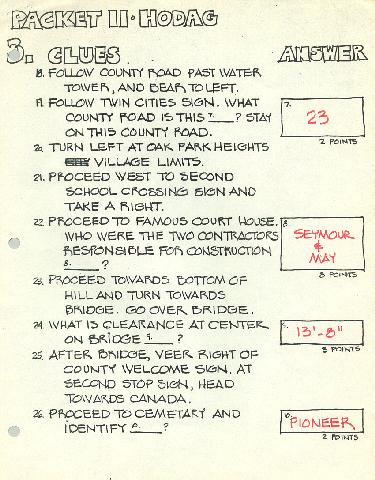 PACKET II · HODAG
3. CLUES ANSWER
18. FOLLOW COUNTY ROAD PAST WATER
TOWER, AND BEAR TO LEFT.
19. FOLLOW TWIN CITIES SIGN. WHAT
COUNTY ROAD IS THIS 7.___? STAY
ON THIS COUNTY ROAD.
7.
23
2 POINTS
20. TURN LEFT AT OAK PARK HEIGHTS
VILLAGE LIMITS.
21. PROCEED WEST TO SECOND
SCHOOL CROSSING SIGN AND
TAKE A RIGHT.
22. PROCEED TO FAMOUS COURT HOUSE.
WHO WERE THE TWO CONTRACTORS
RESPONSIBLE FOR CONSTRUCTION
8.____?
8.
SEYMOUR
&
MAY
8 POINTS
23. PROCEED TOWARDS BOTTOM OF
HILL AND TURN TOWARDS
BRIDGE. GO OVER BRIDGE.
24. WHAT IS CLEARANCE AT CENTER
ON BRIDGE 9.____?
9.
13'-8"
3 POINTS
25. AFTER BRIDGE, VEER RIGHT OF
COUNTY WELCOME SIGN. AT
SECOND STOP SIGN, HEAD
TOWARDS CANADA.
26. PROCEED TO CEMETARY AND
IDENTIFY 10.____?
10.
PIONEER
2 POINTS